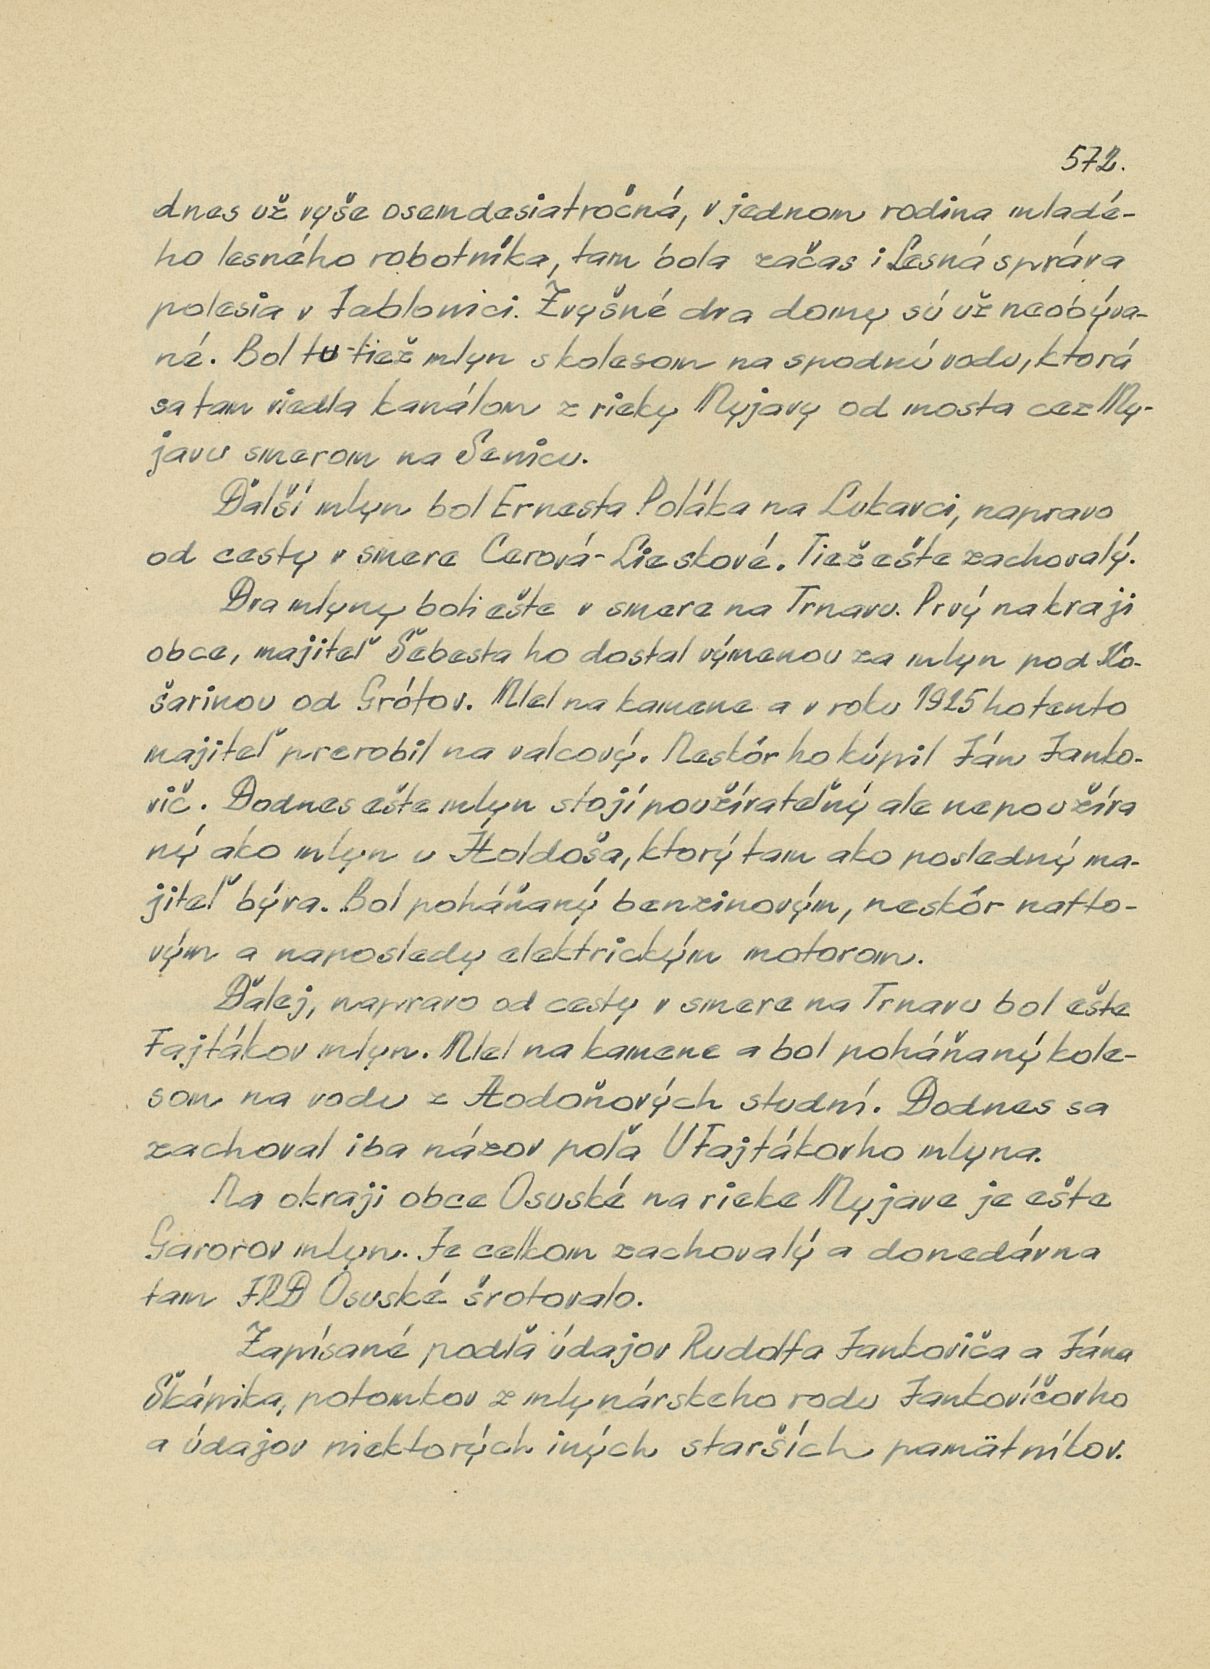 572.
dnes už vyše osemdesiatročná, v jednom rodina mladé-
ho lesného robotníka, tam bola začas i Lesná správa
polesia v Jablonici. Zvyšné dva domy sú už neobýva-
né. Bol tu tiež mlyn s kolesom na spodnú vodu, ktorá
sa tam viedla kanálom z rieky Myjavy od mosta cez My-
javu smerom na Senicu.
Ďalší mlyn bol Ernesta Poláka na Lukavci, napravo
od cesty v smere Cerová-Lieskové. Tiež ešte zachovalý.
Dva mlyny boli ešte v smere na Trnavu. Prvý na kraji
obce, majiteľ Šebesta ho dostal výmenou za mlyn pod Ko-
šarinou od Grófov. Mlel na kamene a v roku 1925 ho tento
majiteľ prerobil na valcový. Neskôr ho kúpil Ján Janko-
vič. Dodnes ešte mlyn stojí používateľný ale nepoužíva
ný ako mlyn u Holdoša, ktorý tam ako posledný ma-
jiteľ býva. Bol poháňaný benzinovým, neskôr nafto-
vým a naposledy elektrickým motorom.
Ďalej, napravo od cesty v smere na Trnavu bol ešte
Fajtákov mlyn. Mlel na kamene a bol poháňaný kole-
som na vodu z Hodoňových studní. Dodnes sa
zachoval iba názov poľa U Fajtákovho mlyna.
Na okraji obce Osuské na rieke Myjave je ešte
Gavorov mlyn. Je celkom zachovalý a donedávna
tam JRD Osuské šrotovalo.
Zapísané podľa údajov Rudolfa Jankoviča a Jána
Škápika, potomkov z mlynárskeho rodu Jankovíčovho
a údajov niektorých iných starších pamätníkov.